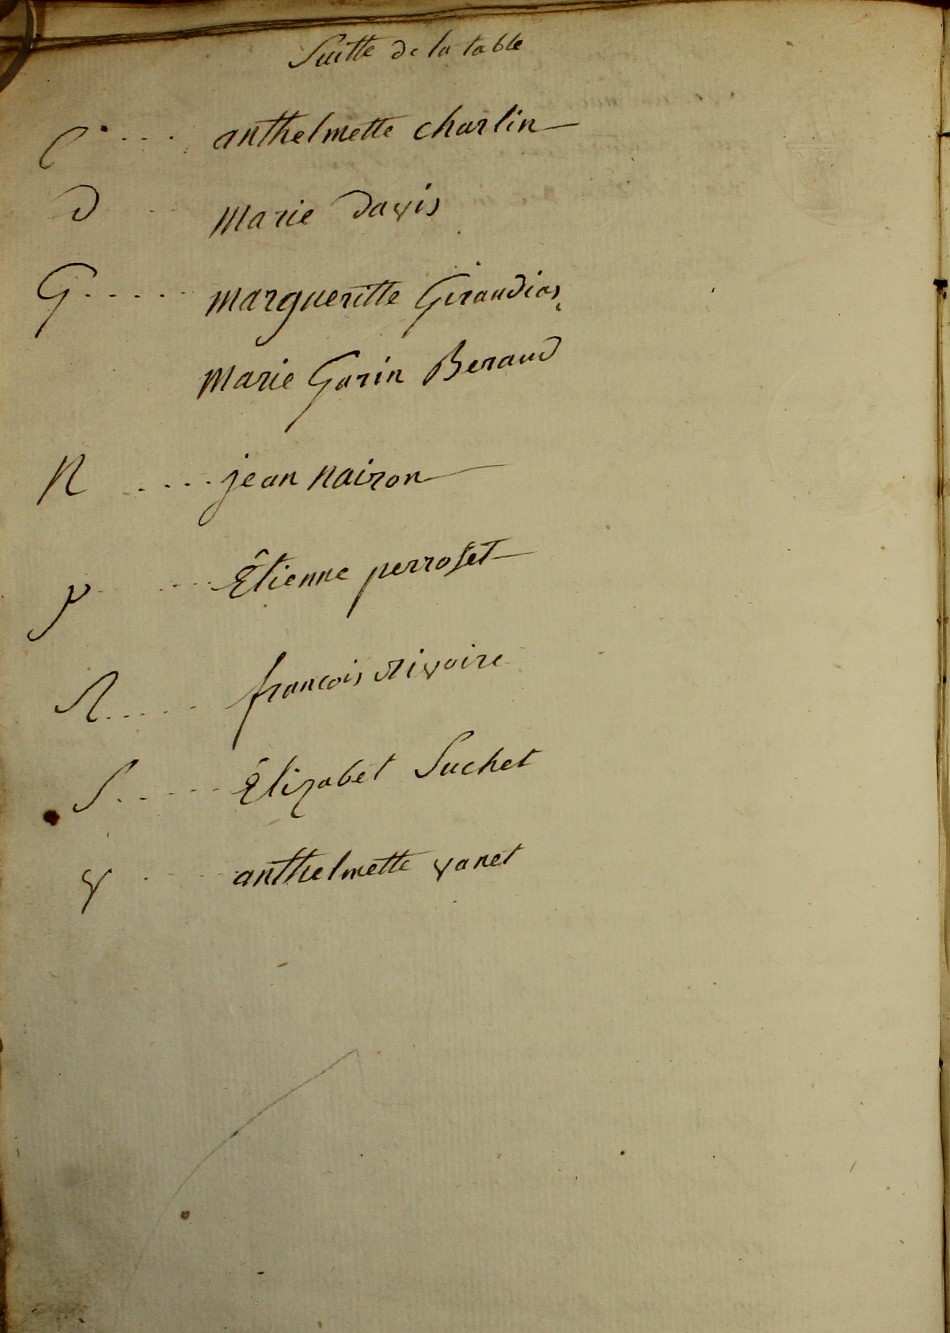 Suitte de la table
C..... anthelmette charlin
D . . Marie Davis
G..... Margueritte Giraudias
Marie Garin Beraud
N ..... jean Nairon
p ..... Êtienne perroset
R...... francois rivoire
S...... Élizabet Suchet
v . .... anthelmette vanet